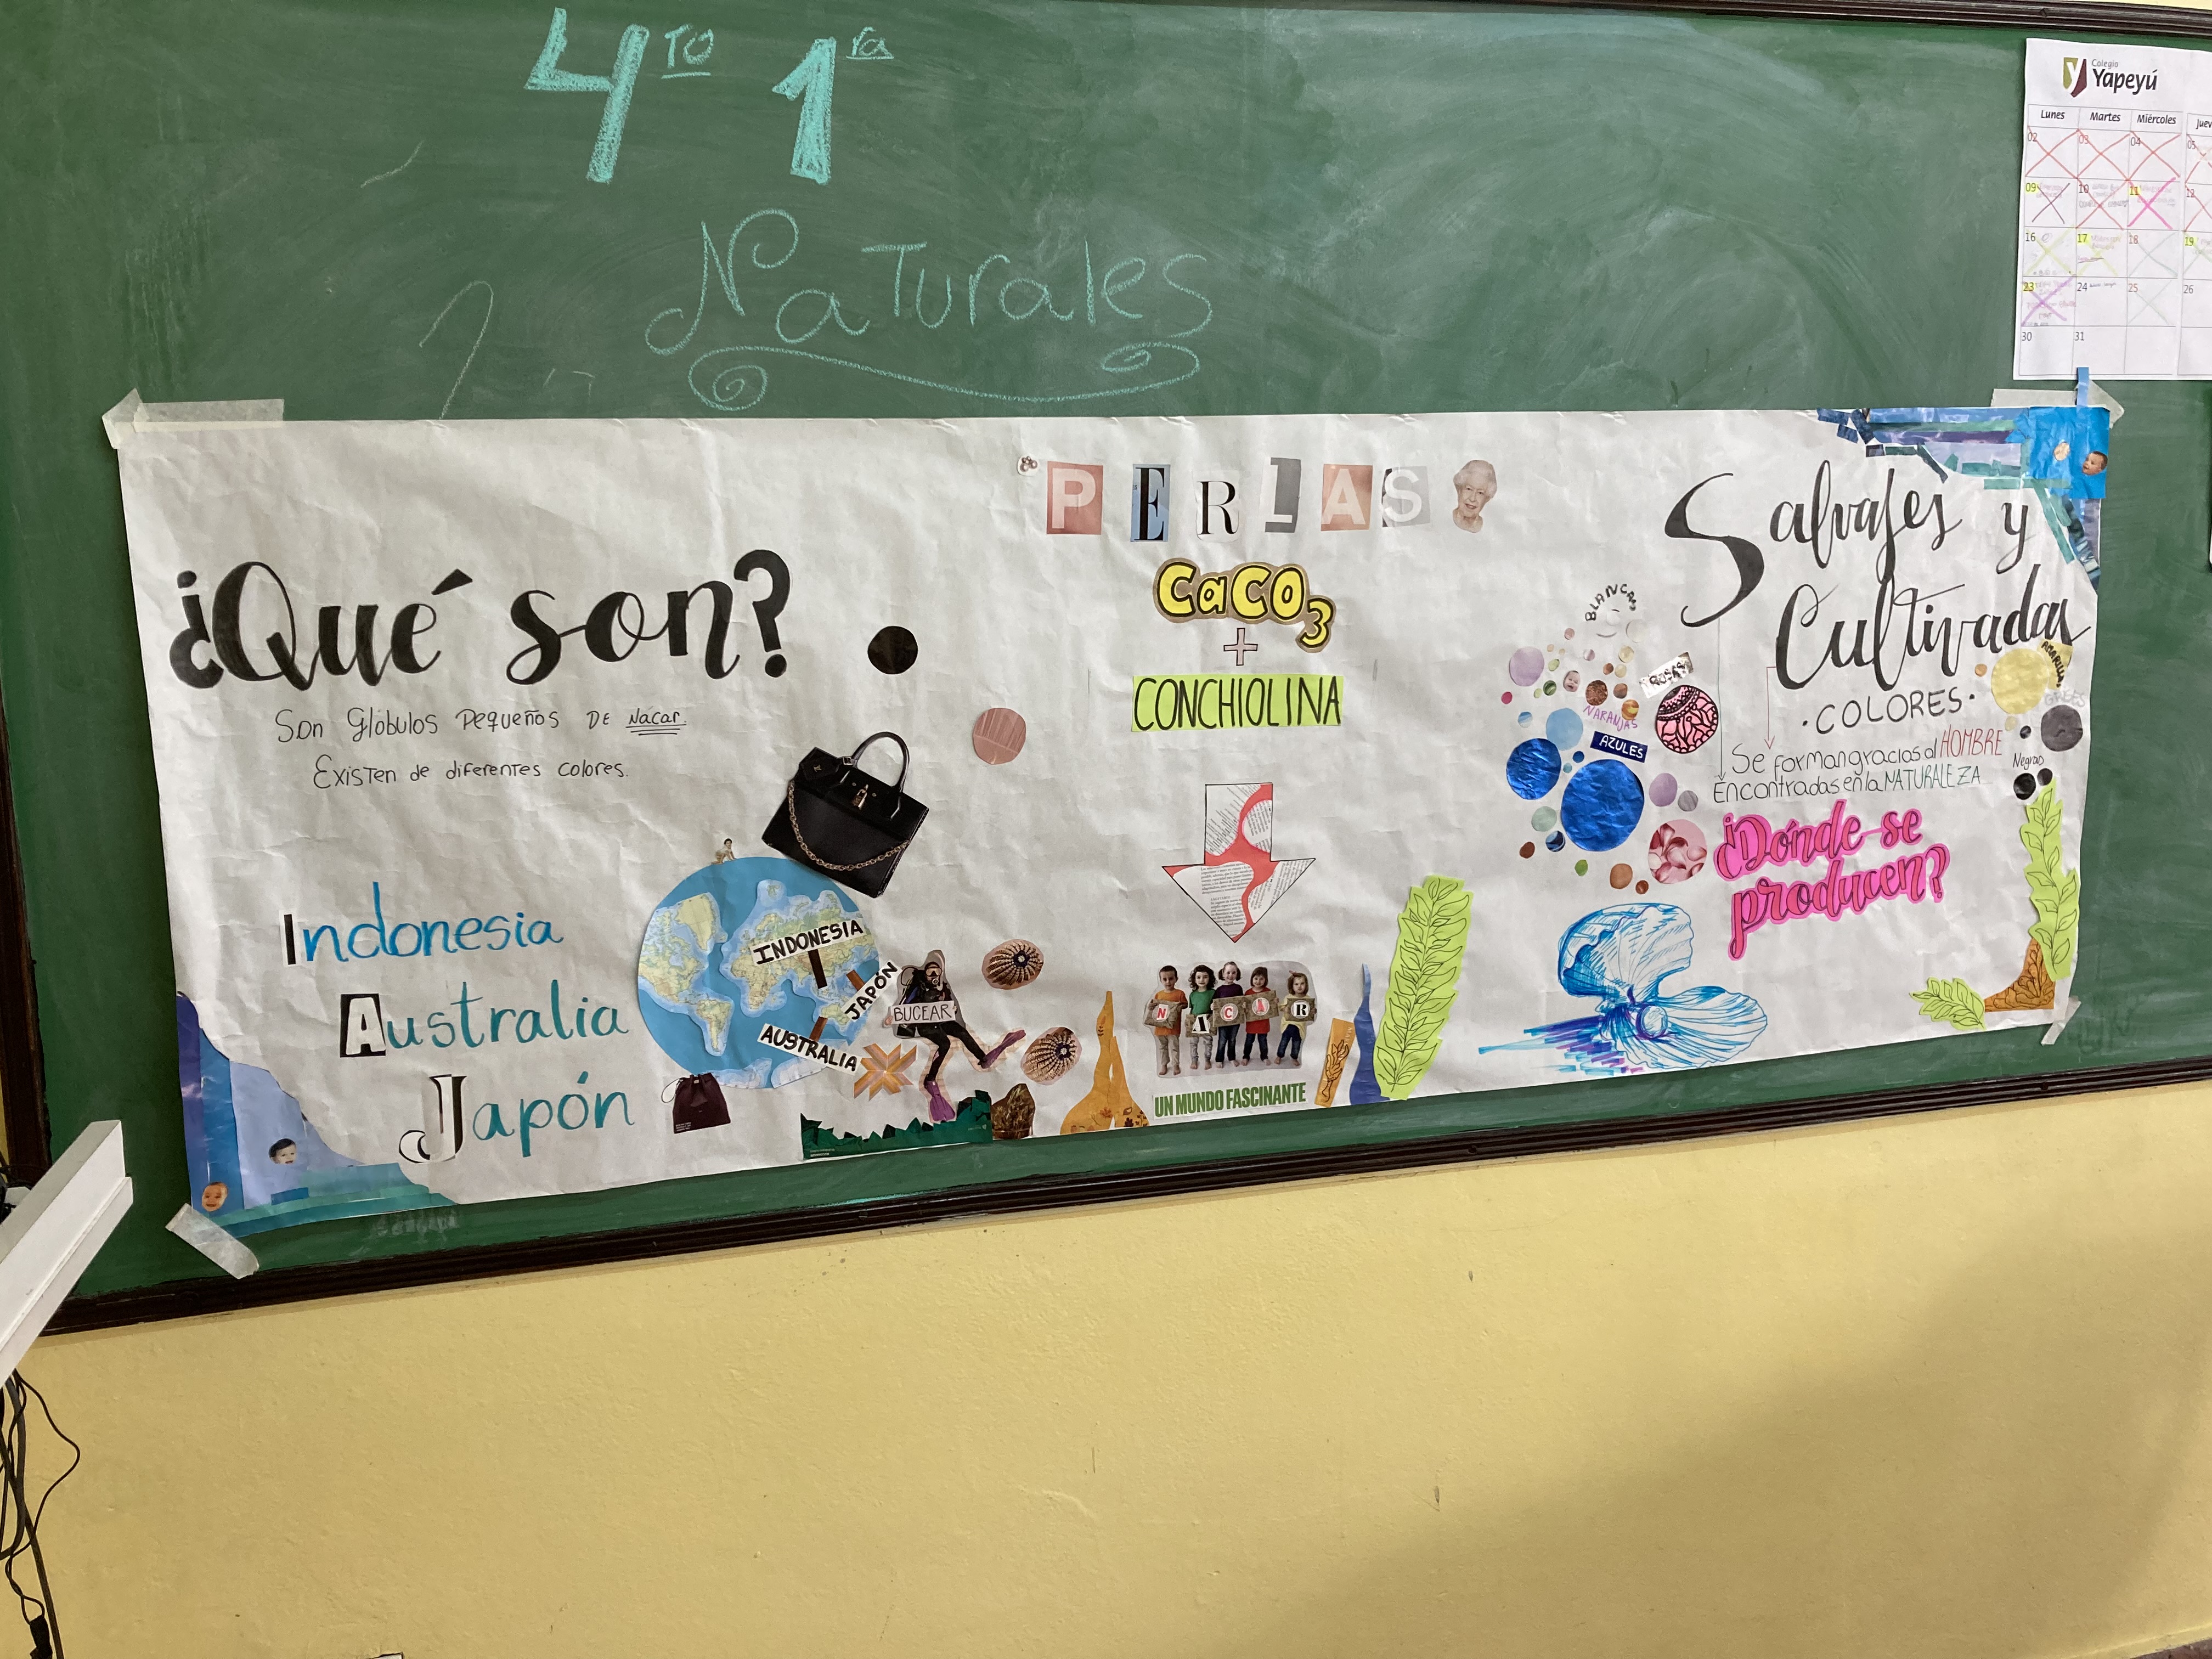 4TO 1ra
Naturales
Colegio
Yapeyú
Lunes Martes Miércoles
02 03 04 05
09 10 11 12
16 17 18 19
23 24 25 26
30 31
¿Qué son?
Son Glóbulos Pequeños DE Nacar.
Existen de diferentes colores.
Indonesia
Australia
Japón
INDONESIA
JAPÓN
AUSTRALIA
BUCEAR
PERLAS
CaCO3
+
CONCHIOLINA
NACAR
UN MUNDO FASCINANTE
Salvajes y
Cultivadas
·COLORES·
Se forman gracias al HOMBRE
Encontradas en la NATURALEZA
BLANCAS
ROSAS
NARANJAS
AZULES
AMARILLAS
GRISES
Negras
¿Dónde se
producen?